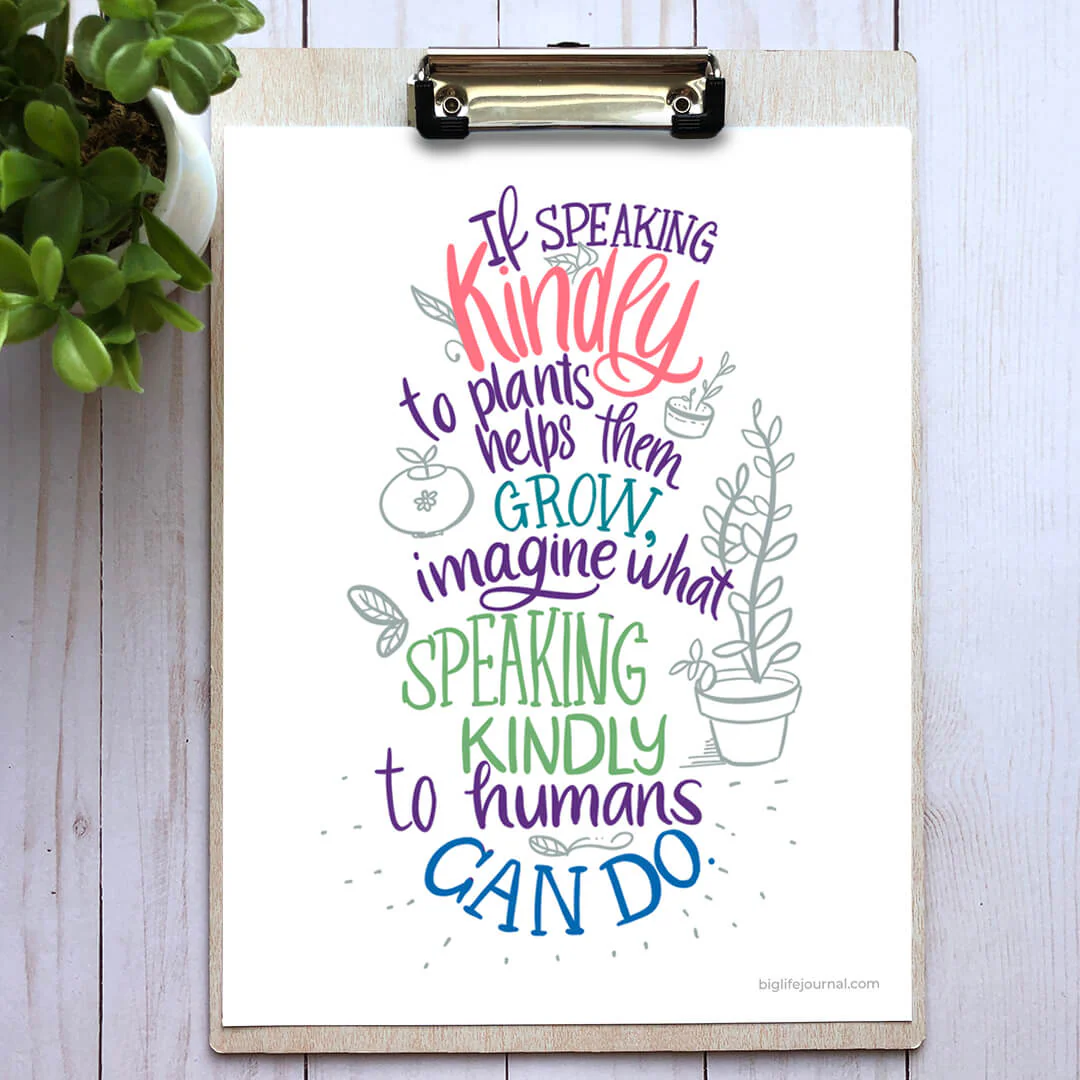 If SPEAKING
Kindly
to plants
helps them
GROW,
imagine what
SPEAKING
KINDLY
to humans
CAN DO.
biglifejournal.com